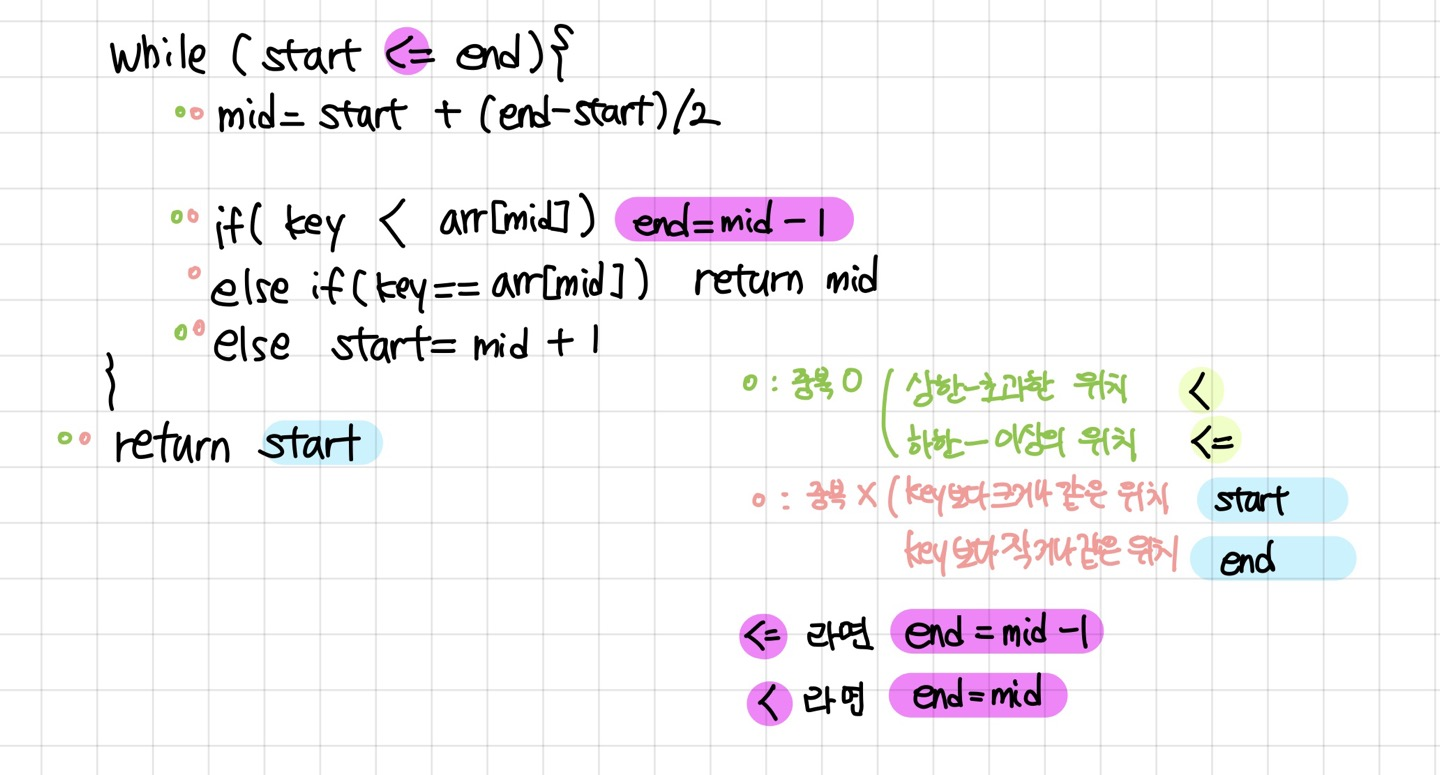 while (start <= end){
mid = start + (end-start)/2
if( key < arr[mid]) end=mid-1
else if(key== arr[mid]) return mid
else start= mid + 1
}
return start
o : 중복 O ( 상한-초과한 위치 <
하한-이상의 위치 <=
o : 중복 X ( key보다 크거나 같은 위치 start
key보다 작거나 같은 위치 end
<= 라면 end = mid -1
< 라면 end=mid